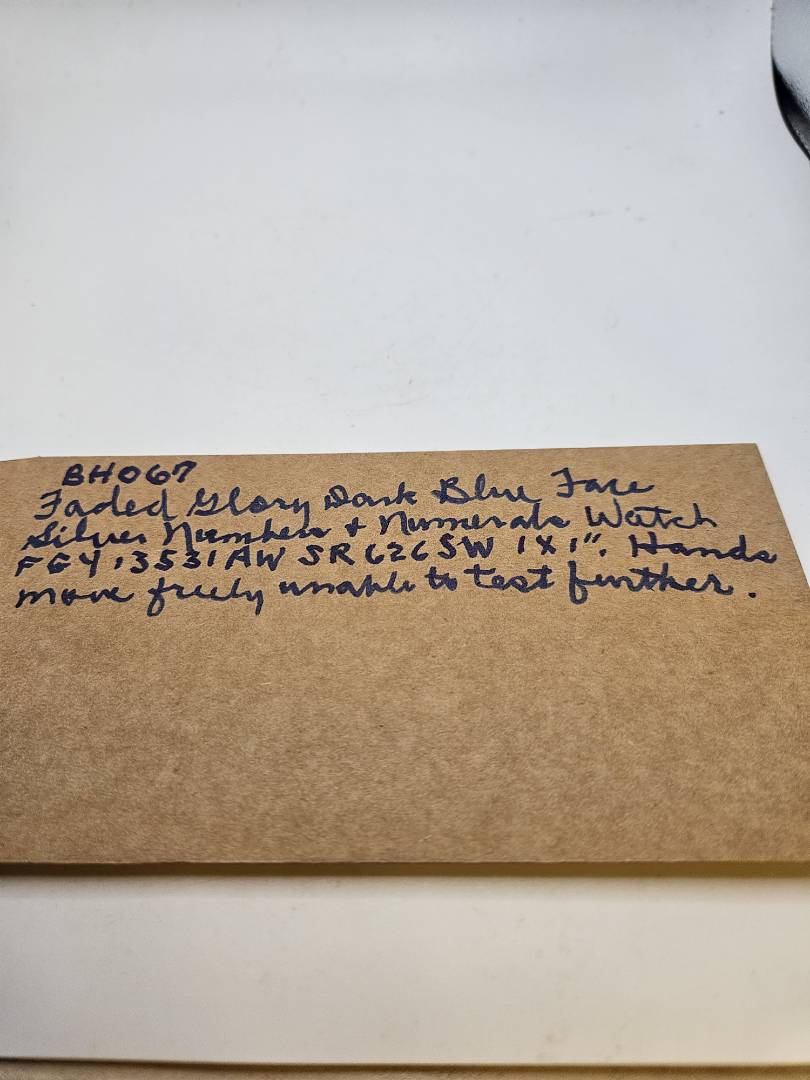 BH067
Faded Glory Dark Blue Face
Silver Numbers + Numerals Watch
FGY13531AW SR626SW 1X1". Hands
move freely unable to test further.